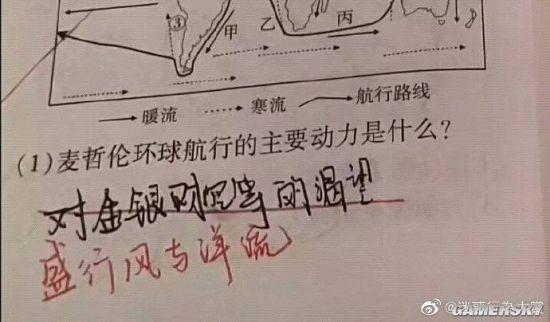 ③
甲
乙
丙
暖流 寒流 航行路线
(1)麦哲伦环球航行的主要动力是什么?
对金银财宝等的渴望
盛行风与洋流
GAMERSKY